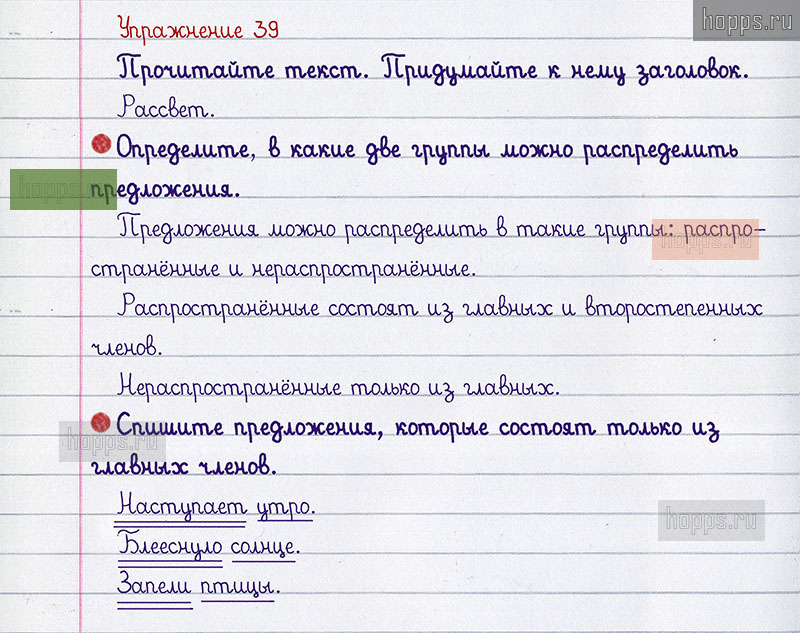 hopps.ru
Упражнение 39
Прочитайте текст. Придумайте к нему заголовок.
Рассвет.
Определите, в какие две группы можно распределить
hopps.ru
предложения.
Предложения можно распределить в такие группы: распро-
hopps.ru
странённые и нераспространённые.
Распространённые состоят из главных и второстепенных
членов.
Нераспространённые только из главных.
Спишите предложения, которые состоят только из
hopps.ru
главных членов.
Наступает утро.
hopps.ru
Блееснуло солнце.
Запели птицы.